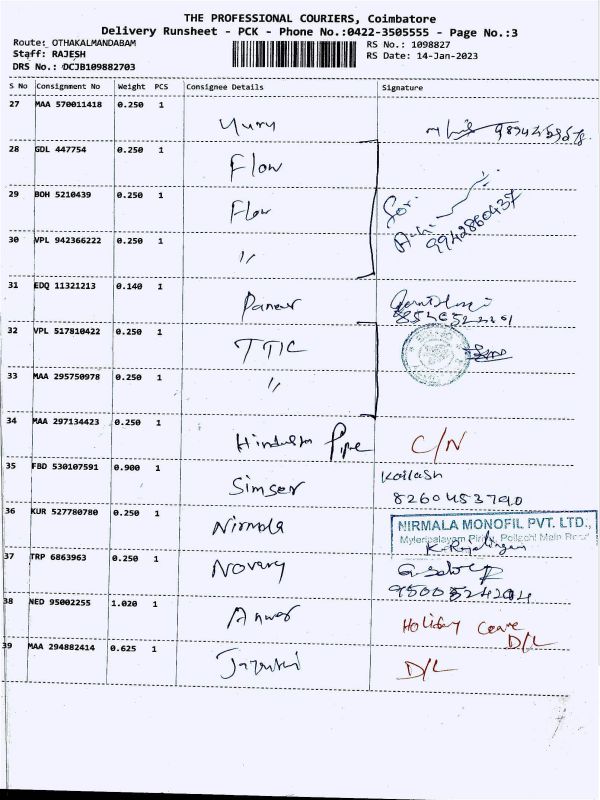 THE PROFESSIONAL COURIERS, Coimbatore
Delivery Runsheet - PCK - Phone No.:0422-3505555 - Page No.:3
Route: OTHAKALMANDABAM RS No.: 1098827
Staff: RAJESH RS Date: 14-Jan-2023
DRS No.: DCJB109882703
S No Consignment No Weight PCS Consignee Details Signature
27 MAA 570011418 0.250 1
28 GDL 447754 0.250 1 Flow
29 BOH 5210439 0.250 1 Flow
9942860437
30 VPL 942366222 0.250 1 "
31 EDQ 11321213 0.140 1
32 VPL 517810422 0.250 1 TTIC
33 MAA 295750978 0.250 1 "
34 MAA 297134423 0.250 1 Hindustan Pipe C/N
35 FBD 530107591 0.900 1 Simser Kailash
8260453790
36 KUR 527780780 0.250 1 Nirmala NIRMALA MONOFIL PVT. LTD.,
Pollachi Main Road
37 TRP 6863963 0.250 1
9500524204
38 NED 95002255 1.020 1 Anwar Holiday Leave
D/L
39 MAA 294882414 0.625 1 D/L